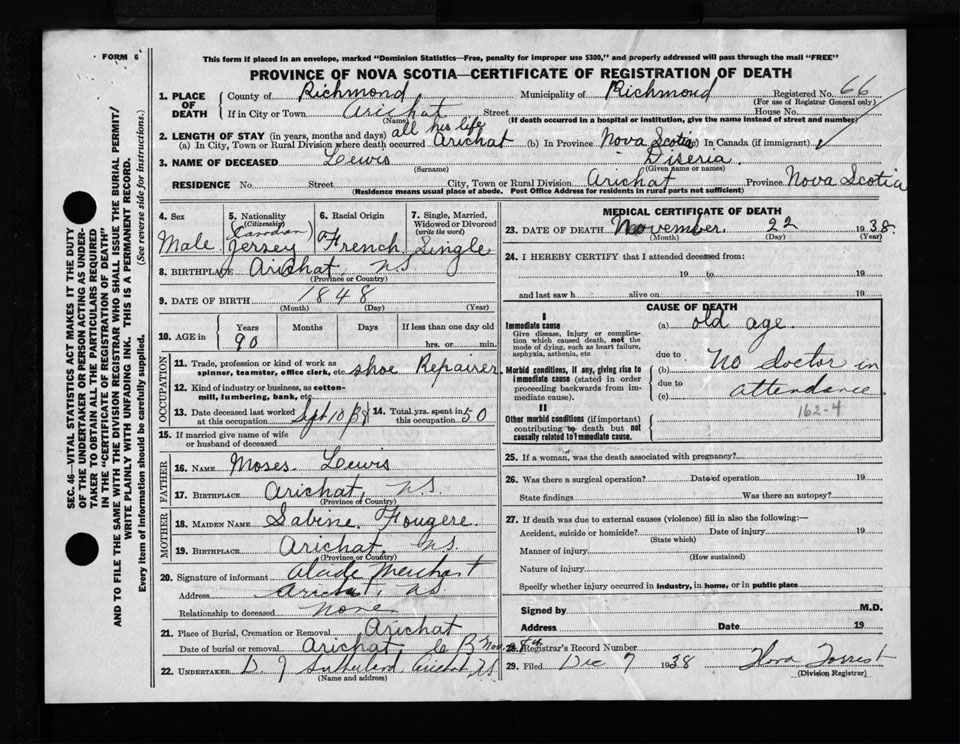 FORM 6
This form if placed in an envelope, marked "Dominion Statistics—Free, penalty for improper use $300," and properly addressed will pass through the mail "FREE"
PROVINCE OF NOVA SCOTIA—CERTIFICATE OF REGISTRATION OF DEATH
1. PLACE OF DEATH County of Richmond Municipality of Richmond Registered No. 66
(For use of Registrar General only)
If in City or Town Arichat Street House No.
(Name) (If death occurred in a hospital or institution, give the name instead of street and number)
2. LENGTH OF STAY (in years, months and days) all his life
(a) In City, Town or Rural Division where death occurred Arichat (b) In Province Nova Scotia (c) In Canada (if immigrant)
3. NAME OF DECEASED Lewis Diseria.
(Surname) (Given name or names)
RESIDENCE No. Street City, Town or Rural Division Arichat Province Nova Scotia
(Residence means usual place of abode. Post Office Address for residents in rural parts not sufficient)
4. Sex Male
5. Nationality (Citizenship) (Canadian) Jersey
6. Racial Origin French
7. Single, Married, Widowed or Divorced (write the word) Single
8. BIRTHPLACE Arichat, N.S.
(Province or Country)
9. DATE OF BIRTH 1848
(Month) (Day) (Year)
10. AGE in Years Months Days If less than one day old
90 hrs. or min.
OCCUPATION
11. Trade, profession or kind of work as spinner, teamster, office clerk, etc. shoe Repairer
12. Kind of industry or business, as cotton-mill, lumbering, bank, etc.
13. Date deceased last worked at this occupation Sept 10/38 14. Total yrs. spent in this occupation 50
15. If married give name of wife or husband of deceased
FATHER
16. NAME Moses Lewis
17. BIRTHPLACE Arichat, N.S.
(Province or Country)
MOTHER
18. MAIDEN NAME Sabine Fougere.
19. BIRTHPLACE Arichat, N.S.
(Province or Country)
20. Signature of informant
Address Arichat, N.S.
Relationship to deceased None
21. Place of Burial, Cremation or Removal Arichat
Date of burial or removal Arichat, C B Nov.
22. UNDERTAKER D. J Sutherland, Arichat N.S
(Name and address)
MEDICAL CERTIFICATE OF DEATH
23. DATE OF DEATH November 22 1938.
(Month) (Day) (Year)
24. I HEREBY CERTIFY that I attended deceased from:
19 to 19
and last saw h alive on 19
CAUSE OF DEATH
I
Immediate cause (a) old age
Give disease, injury or complication which caused death, not the mode of dying, such as heart failure, asphyxia, asthenia, etc
due to
Morbid conditions, if any, giving rise to immediate cause (stated in order proceeding backwards from immediate cause). (b) No doctor in
due to
(c) attendance
162-4
II
Other morbid conditions (if important) contributing to death but not causally related to immediate cause.
25. If a woman, was the death associated with pregnancy?
26. Was there a surgical operation? Date of operation 19
State findings Was there an autopsy?
27. If death was due to external causes (violence) fill in also the following:—
Accident, suicide or homicide? Date of injury 19
(State which)
Manner of injury
(How sustained)
Nature of injury
Specify whether injury occurred in industry, in home, or in public place
Signed by M.D.
Address Date 19
28. Registrar's Record Number
29. Filed Dec 7 1938 Flora Forrest
(Division Registrar)
SEC. 46—VITAL STATISTICS ACT MAKES IT THE DUTY
OF THE UNDERTAKER OR PERSON ACTING AS UNDER-
TAKER TO OBTAIN ALL THE PARTICULARS REQUIRED
IN THE "CERTIFICATE OF REGISTRATION OF DEATH"
AND TO FILE THE SAME WITH THE DIVISION REGISTRAR WHO SHALL ISSUE THE BURIAL PERMIT/
WRITE PLAINLY WITH UNFADING INK. THIS IS A PERMANENT RECORD.
Every item of information should be carefully supplied. (See reverse side for instructions.)